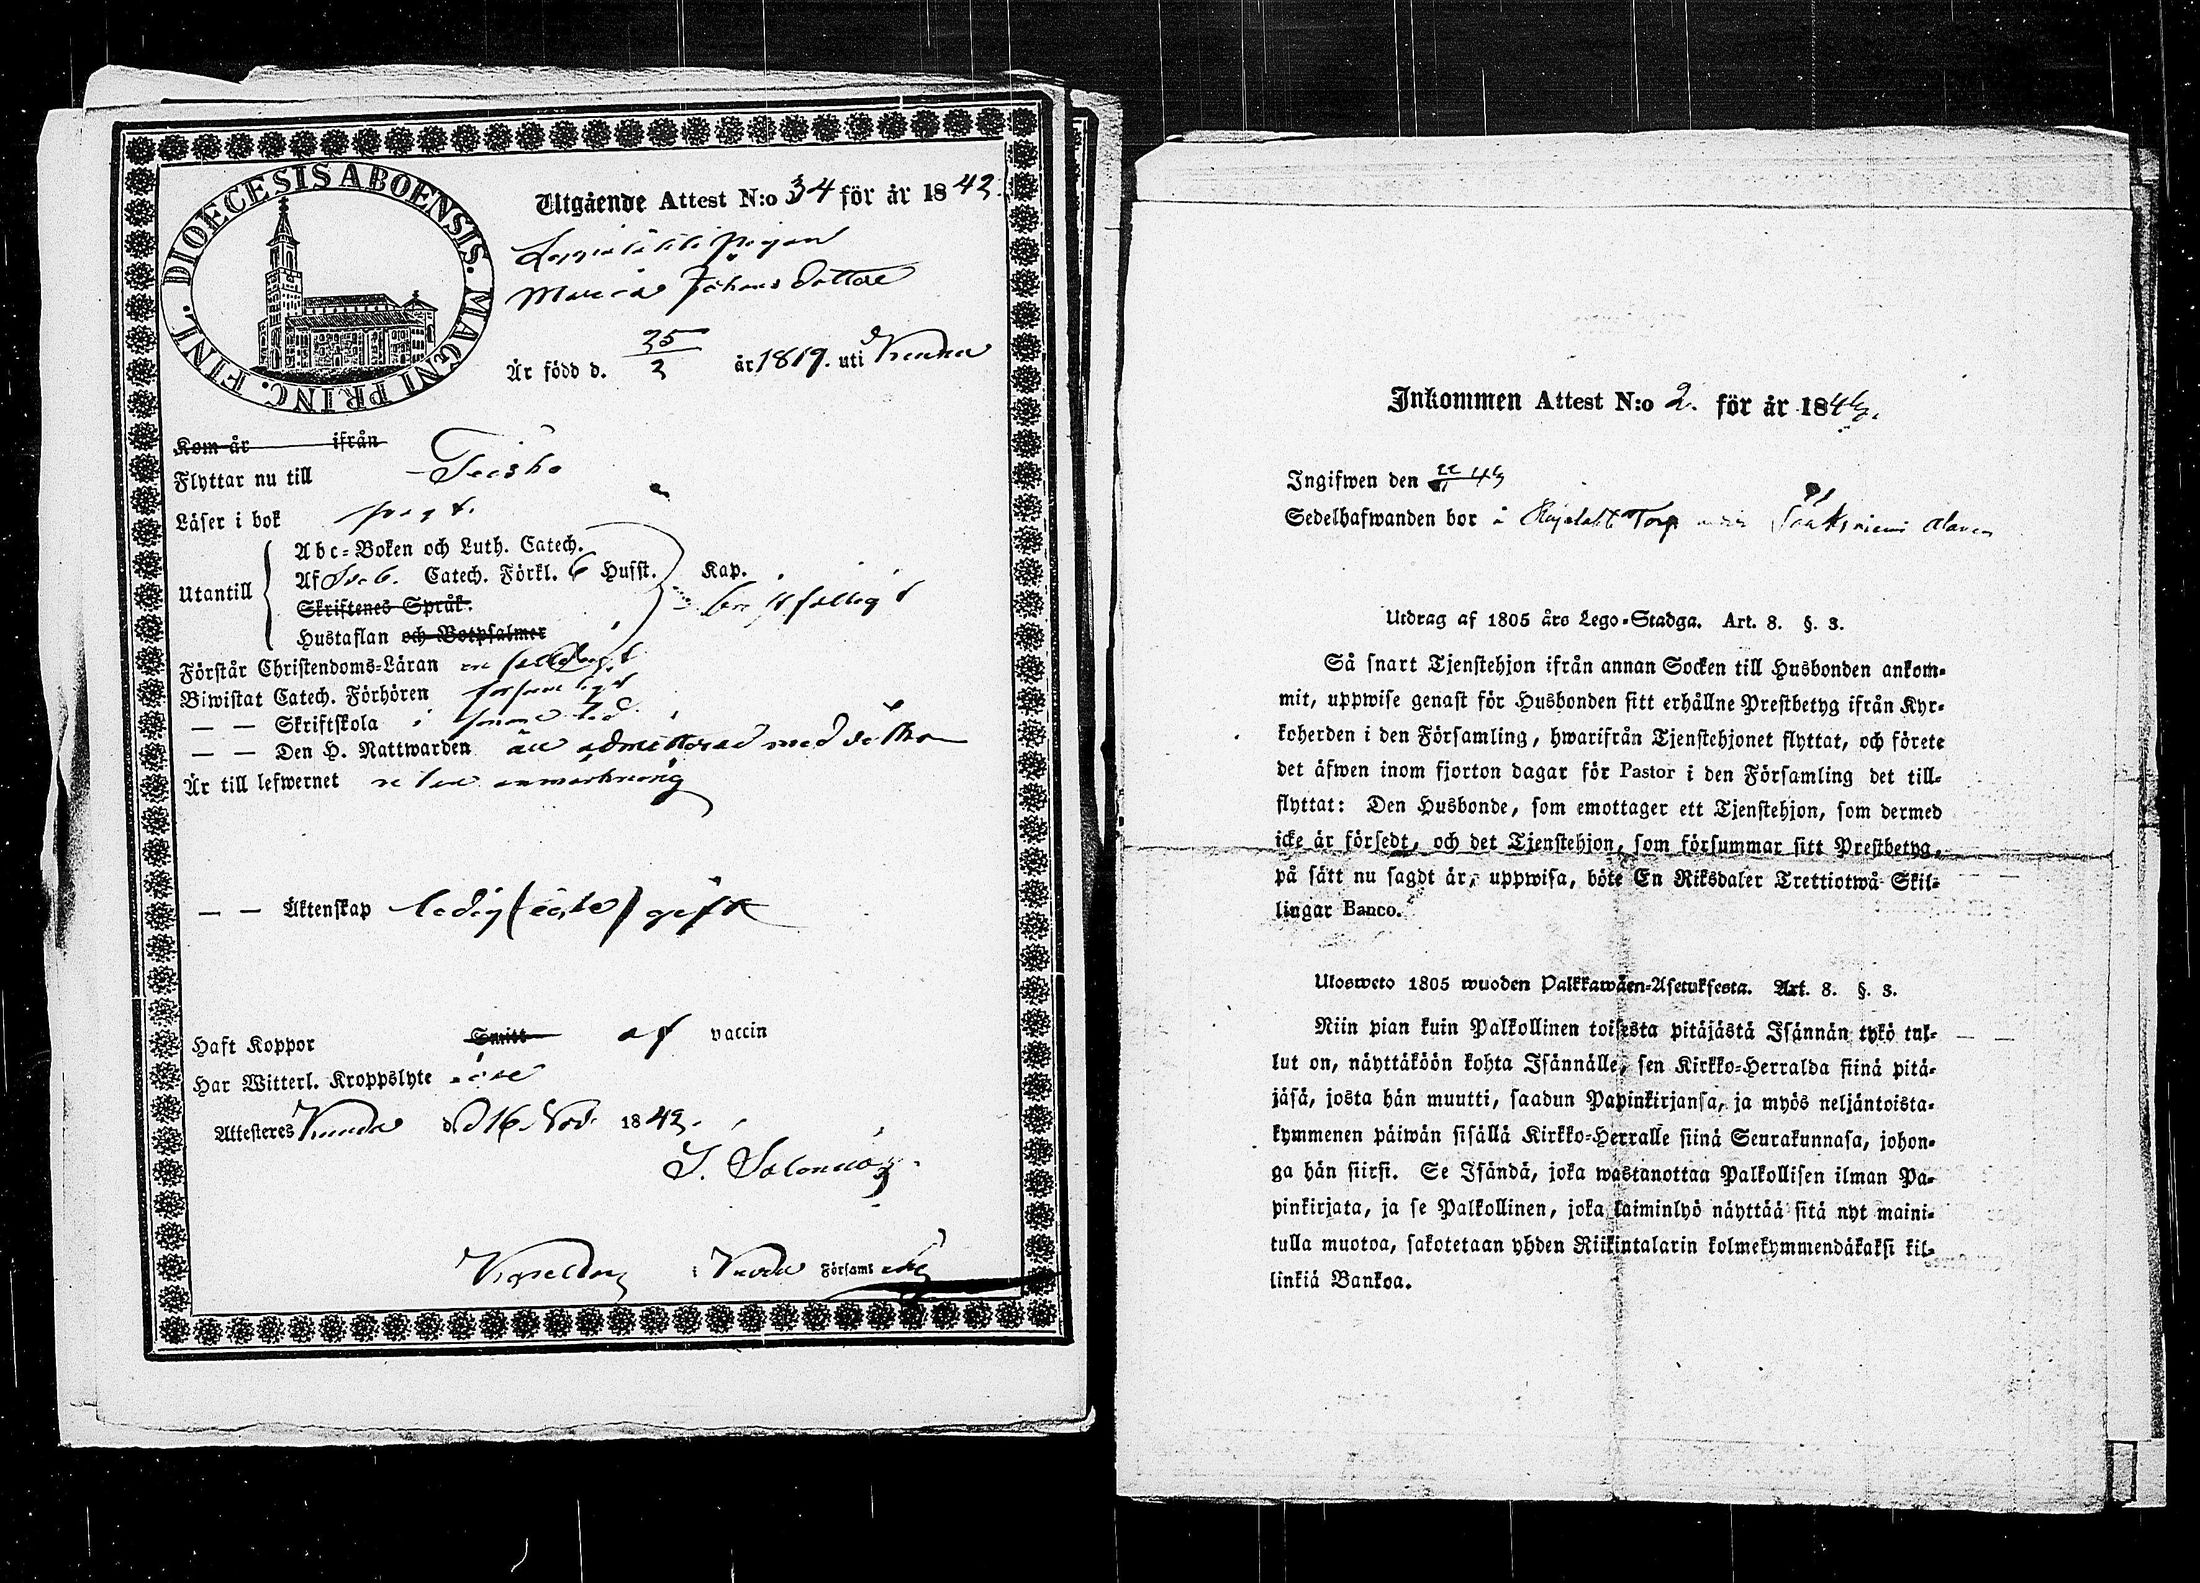 DIOECESIS ABOENSIS. MAGNI PRINC. FINL.
Utgående Attest N:o 34 för år 1842.
Maria Johans Dotter
Är född d. 25/3 år 1819. uti
Kom år ifrån
Flyttar nu till Teisko
Läser i bok
Utantill
Abc-Boken och Luth. Catech.
Af Sveb. Catech. Förkl. 6 Husst. Kap.
Skriftenes Språk.
Hustaflan och Botpsalmer
Förstår Christendoms-Läran enfaldigt
Biwistat Catech. Förhören
— — Skriftskola i
— — Den H. Nattwarden är admitterad med detta
Är till lefwernet utan anmärkning
— — Äktenskap ledig (ägte) gifte
Haft Koppor Smitt af vaccin
Har Witterl. Kroppslyte
Attesteres d. 16. Nov. 1842.
i Församl
Inkommen Attest N:o 2. för år 1843.
Ingifwen den 43
Sedelhafwanden bor å Torp
Utdrag af 1805 års Lego-Stadga. Art. 8. §. 3.
Så snart Tjenstehjon ifrån annan Socken till Husbonden ankom-
mit, uppwise genast för Husbonden sitt erhållne Prestbetyg ifrån Kyr-
koherden i den Församling, hwarifrån Tjenstehjonet flyttat, och förete
det äfwen inom fjorton dagar för Pastor i den Församling det till-
flyttat: Den Husbonde, som emottager ett Tjenstehjon, som dermed
icke är försedt, och det Tjenstehjon, som försummar sitt Prestbetyg,
på sätt nu sagdt är, uppwisa, böte En Riksdaler Trettiotwå Skil-
lingar Banco.
Ulosweto 1805 wuoden Palkkawäen-Asetuksesta. Art. 8. §. 3.
Niin pian kuin Palkollinen toisesta pitäjästä Isännän tykö tul-
lut on, näyttäköön kohta Isännälle, sen Kirkko-Herralda siinä pitä-
jäsä, josta hän muutti, saadun Papinkirjansa, ja myös neljäntoista-
kymmenen päiwän sisällä Kirkko-Herralle siinä Seurakunnasa, johon-
ga hän siirsi. Se Isändä, joka wastanottaa Palkollisen ilman Pa-
pinkirjata, ja se Palkollinen, joka laiminlyö näyttää sitä nyt maini-
tulla muotoa, sakotetaan yhden Riikintalarin kolmekymmendäkaksi kil-
linkiä Bankoa.